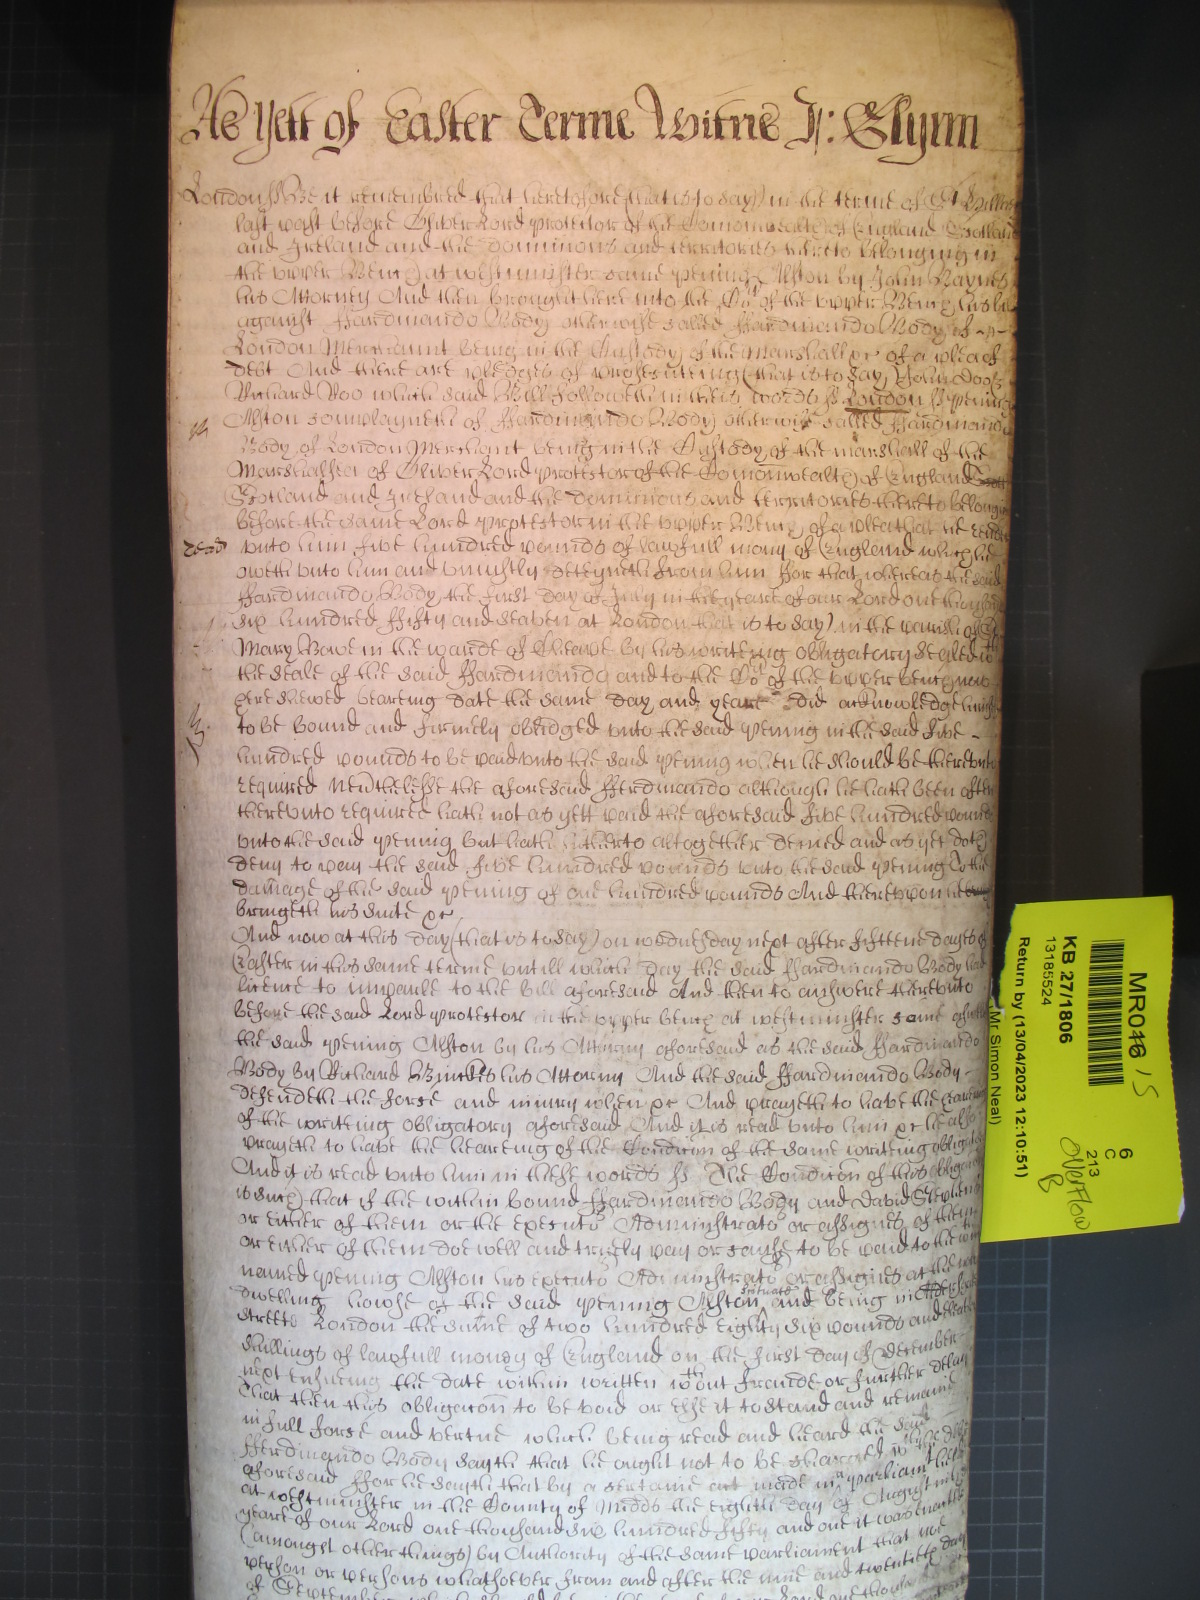 As yett of Easter Terme Witnes Jo: Glynn
London ss Be it remembred that heretofore (that is to say) in the terme of St Hillary
last past before Oliver Lord protector of the Comonwealth of England Scotland
and Ireland and the dominions and territories thereto belonging in
the upper Bench at westminster came pening Alston by John Baynes
his Attorney And then brought here into the Cort of the upper Bench his bill
against ffardinando Body otherwise called ffardinando Body of
London Merchaunt being in the Custody of the Marshall &c of a plea of
debt And there are pledges of prosecuting (that is to say) John Doe &
Richard Roo which said Bill followeth in theis words ss London ss pening
Alston complayneth of ffardinando Body otherwise called ffardinando
Body of London Merchant being in the Custody of the marshall of the
Marshalsea of Oliver Lord protector of the Comonwealth of England Scott
Scotland and Ireland and the dominions and territories thereto belonging
before the same Lord protector in the upper Bench of a plea that he render
unto him five hundred pounds of lawfull mony of England which he
oweth unto him and uniustly deteyneth from him ffor that whereas the said
ffardinando Body the first day of July in the yeare of our Lord one thousand
six hundred ffifty and seaven at London (that is to say) in the parish of St
Mary Bowe in the warde of Cheape by his writeing obligatory sealed wth
the seale of the said ffardinando and to the Cort of the upper bench now
here shewed beareing date the same day and yeare did acknowledge himselfe
to be bound and firmely obliged unto the said pening in the said five
hundred pounds to be paid unto the said pening when he should be thereunto
required Nevtheles the aforesaid fferdinando although he hath been often
thereunto required hath not as yett paid the aforesaid five hundred pounds
unto the said pening but hath hitherto altogether denied and as yet doth
deny to pay the said five hundred pounds unto the said pening to the
damage of the said pening of one hundred pounds And thereupon he
bringeth his suite &c
And now at this day (that is to say) on wednesday next after fifteene dayes of
Easter in this same terme untill which day the said ffardinando Body had
licence to imparle to the bill aforesaid And then to answere thereunto
before the said Lord protector in the upper bench at westminster came aswell
the said pening Alston by his Attorny aforesaid as the said ffardinando
Body by Richard his Attorny And the said ffardinando Body
defendeth the force and iniury when &c And prayeth to have the heareing
of the writeing obligatory aforesaid And it is read unto him &c he also
prayeth to have the heareing of the Condicon of the same writeing obligatory
And it is read unto him in these words ss The Condicon of this obligacon
is such that if the within bound ffardinando Body and David Stephens
or either of them or the executors Administrators or assignes of them
or either of them doe well and truely pay or cause to be paid to the within
named pening Alston his executors Administrators or assignes at the now
dwelling howse of the said pening Alston scituate and being in
streete London the sume of two hundred eighty six pounds and
shillings of lawfull money of England on the first day of December
next ensueing the date within written wthout fraude or further delay
That then this obligacon to be void or else it to stand and remaine
in full force and vertue which being read and heard the said
fferdinando Body sayth that he ought not to be charged
aforesaid ffor he sayth that by a certaine act made in a parliament held
at westminster in the County of Midds the eighth day of August in the
yeare of our Lord one thousand six hundred fifty and one it was enacted
(amongst other things) by Authority of the same parliament that noe
person or persons whatsoever from and after the nine and twentieth day
of September
MR046 15
KB 27/1806
13185524
Return by (13/04/2023 12:10:51)
(Mr Simon Neal)
6
C
213
Overflow
B